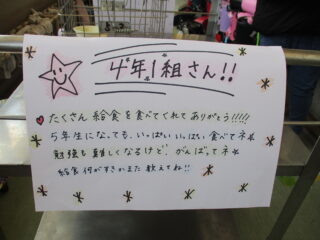 4年1組さん!!
たくさん給食を食べてくれてありがとう!!!!!
5年生になっても、いっぱいいっぱい食べてネ
勉強も難しくなるけど、がんばってネ
給食何がすきかまた教えてね!!